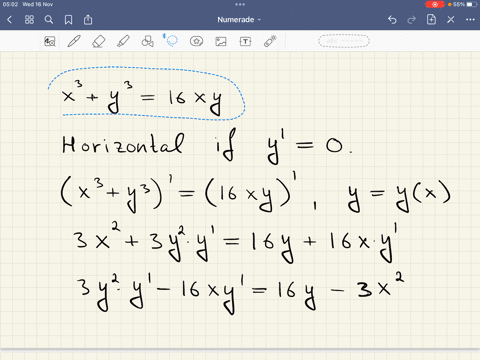 05:02 Wed 16 Nov
55%
Numerade
x³ + y³ = 16xy
Horizontal if y' = 0.
(x³ + y³)' = (16xy)', y = y(x)
3x² + 3y²·y' = 16y + 16x·y'
3y²·y' − 16xy' = 16y − 3x²